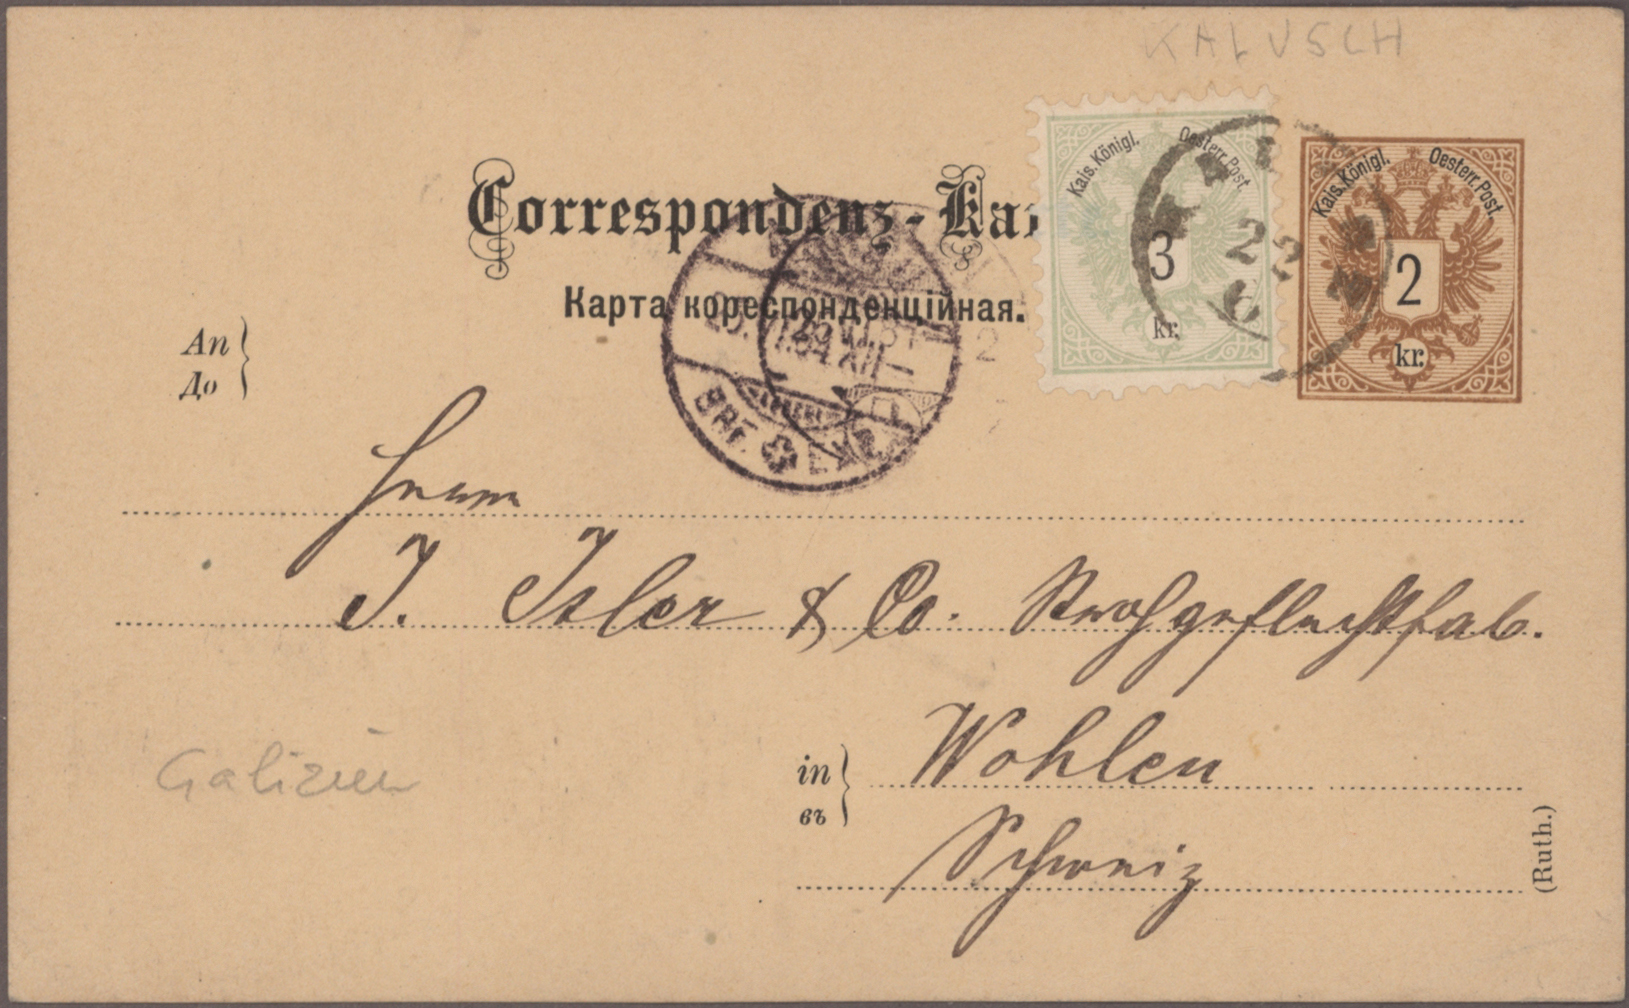 KALUSCH
Correspondenz-Kar
Карта кореспонденційная.
Kais. Königl. Oesterr. Post.
3
kr.
Kais. Königl. Oesterr. Post.
2
kr.
22
6
An
До
BRF.
2
Herrn
J. Isler & Co. Strohgeflechtfab.
in Wohlen
въ
Schweiz
Galizien
(Ruth.)